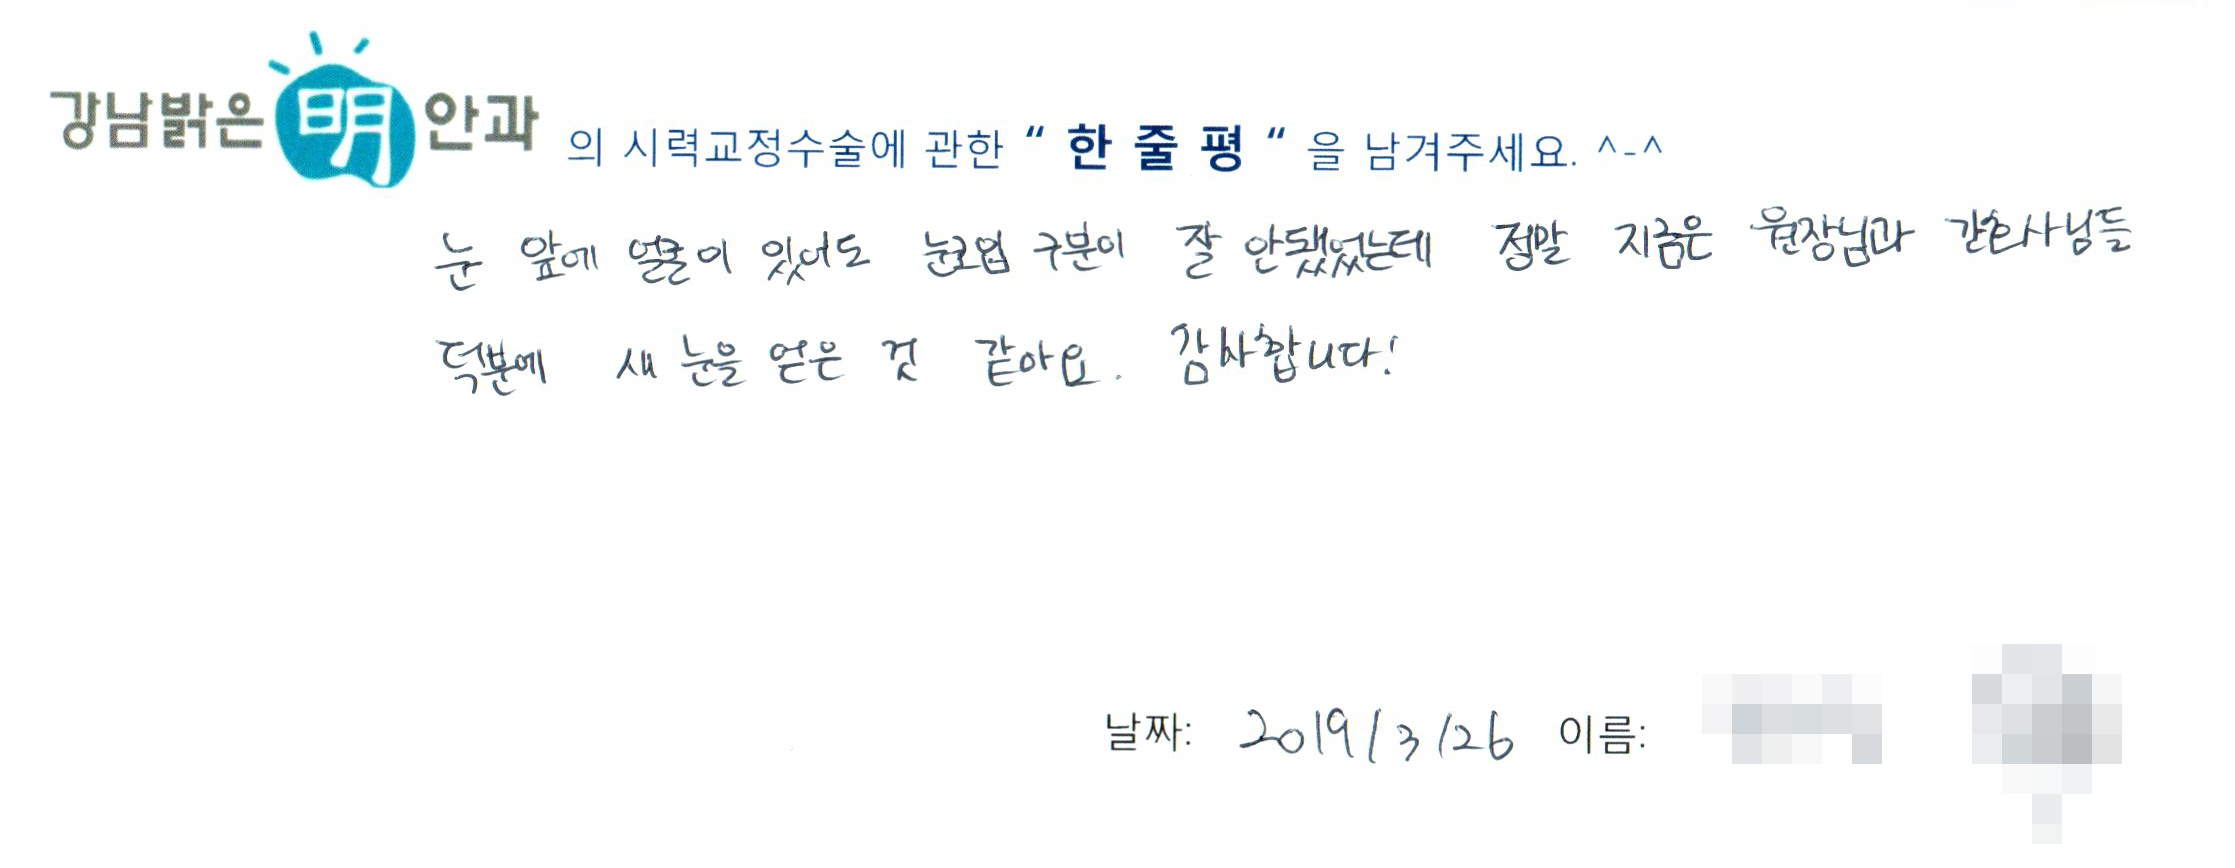 강남밝은明안과 의 시력교정수술에 관한 “ 한 줄 평 “ 을 남겨주세요. ^-^
눈 앞에 얼굴이 있어도 눈코입 구분이 잘 안됐었는데 정말 지금은 원장님과 간호사님들
덕분에 새 눈을 얻은 것 같아요. 감사합니다!
날짜: 2019/3/26 이름: